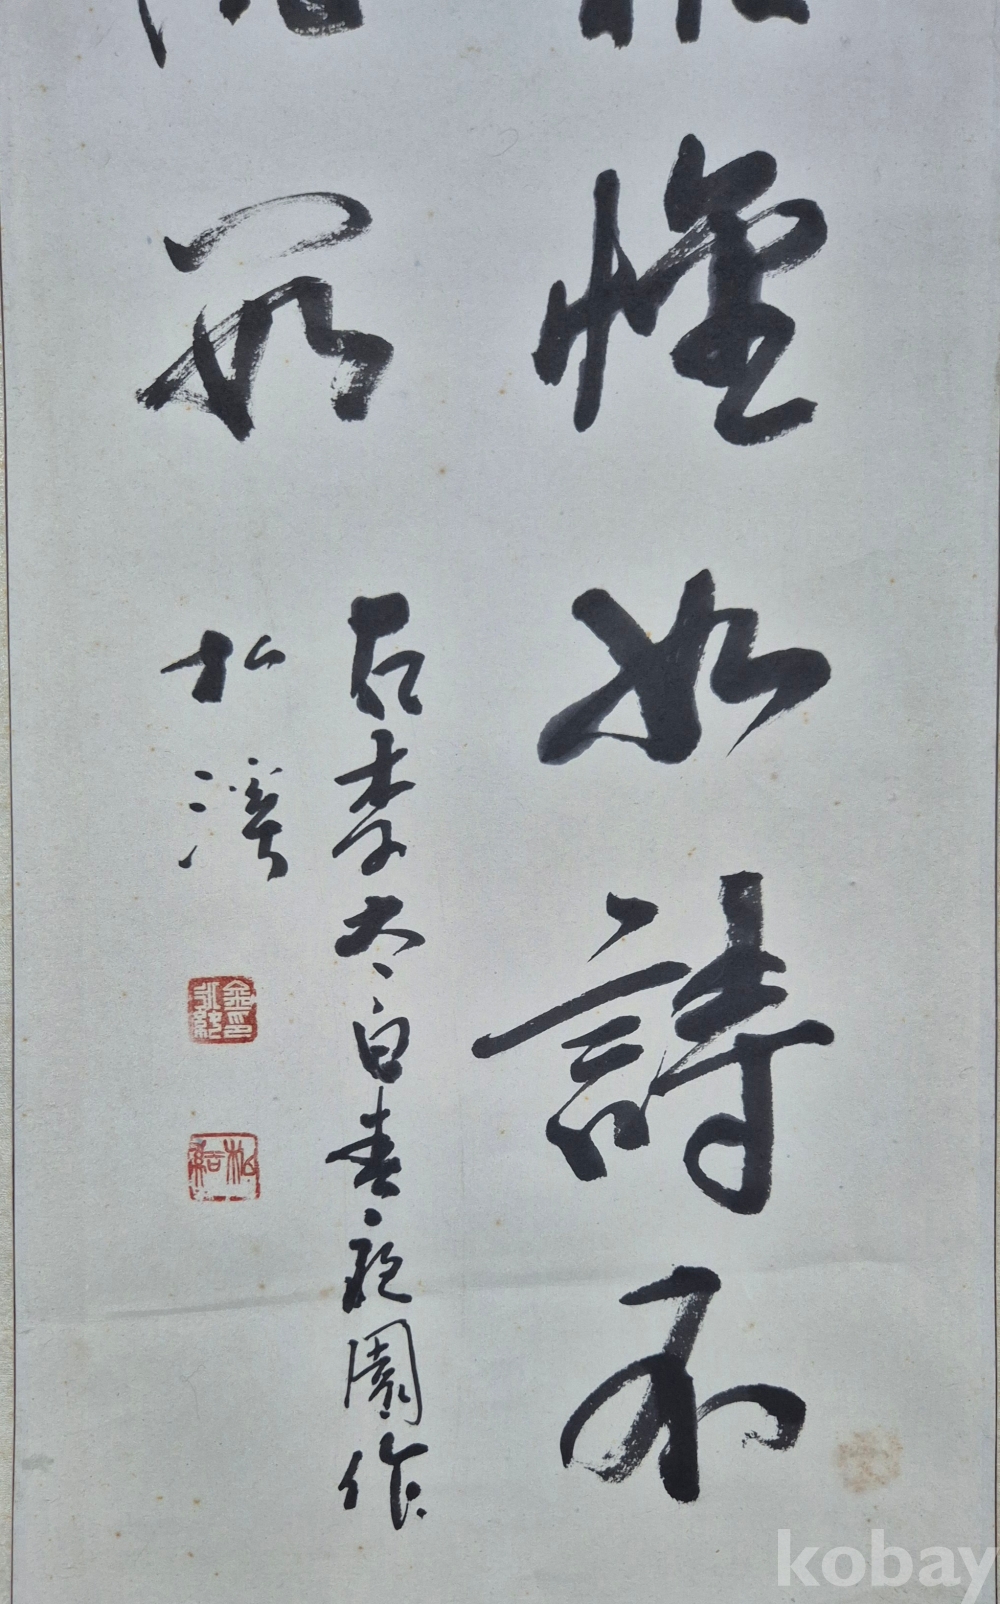 懷如詩不
數
右李太白春夜園作
松溪
kobay